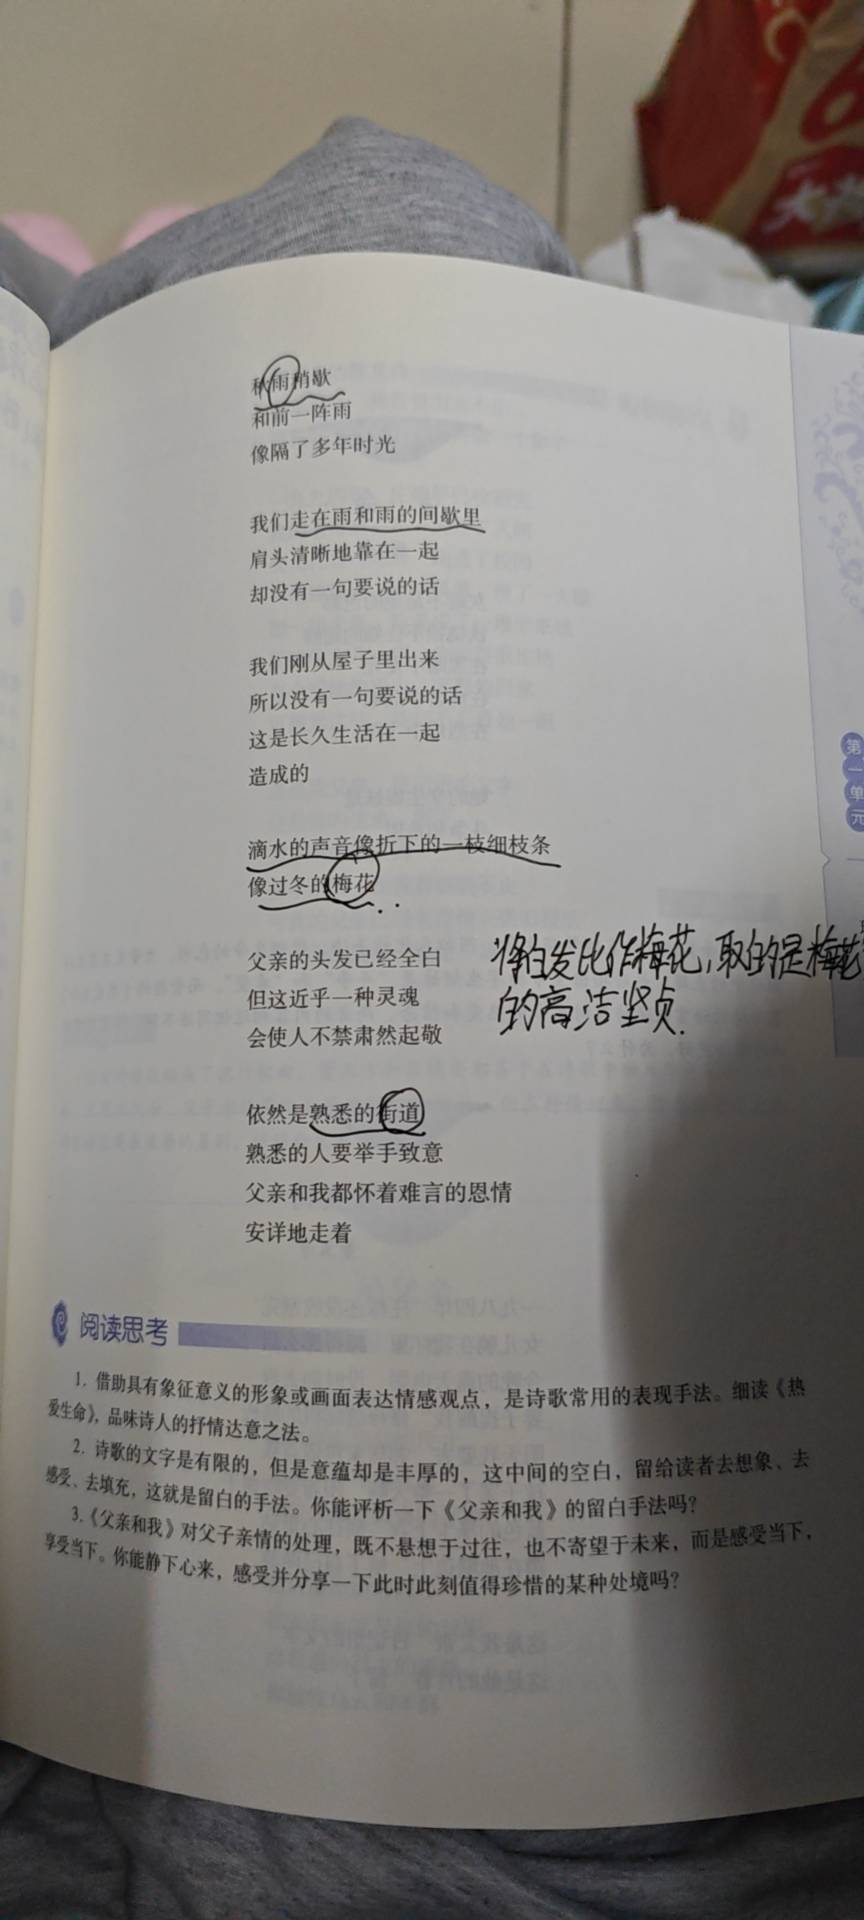 秋雨稍歇
和前一阵雨
像隔了多年时光
我们走在雨和雨的间歇里
肩头清晰地靠在一起
却没有一句要说的话
我们刚从屋子里出来
所以没有一句要说的话
这是长久生活在一起
造成的
滴水的声音像折下的一枝细枝条
像过冬的梅花
父亲的头发已经全白
但这近乎一种灵魂
会使人不禁肃然起敬
将白发比作梅花，取的是梅花
的高洁坚贞.
依然是熟悉的街道
熟悉的人要举手致意
父亲和我都怀着难言的恩情
安详地走着
阅读思考
1. 借助具有象征意义的形象或画面表达情感观点，是诗歌常用的表现手法。细读《热
爱生命》，品味诗人的抒情达意之法。
2. 诗歌的文字是有限的，但是意蕴却是丰厚的，这中间的空白，留给读者去想象、去
感受、去填充，这就是留白的手法。你能评析一下《父亲和我》的留白手法吗？
3.《父亲和我》对父子亲情的处理，既不悬想于过往，也不寄望于未来，而是感受当下，
享受当下。你能静下心来，感受并分享一下此时此刻值得珍惜的某种处境吗？
第一单元